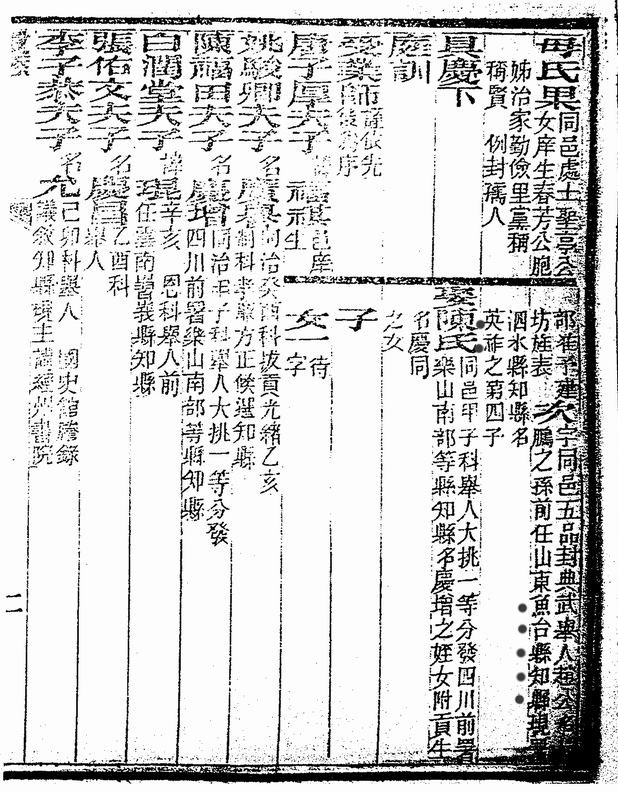 母氏果同邑處士聖亭公
女庠生春芳公胞
姊治家勤儉里黨稱
稱賢 例封孺人
具慶下
庭訓
受業師
部
坊旌表 次字同邑五品封典武舉人
鵬之孫前任山東魚台縣知縣現署
泗水縣知縣名
英祚之第四子
娶陳氏同邑甲子科舉人大挑一等分發四川前署
樂山南部等縣知縣名慶增之姪女附貢生
名慶同
之女
子
女一待
字
康子厚夫子 福其邑庠
生
姚駿卿夫子名
同治癸酉科拔貢光緒乙亥
制科孝廉方正候選知縣
陳福田夫子名慶增同治甲子科舉人大挑一等分發
四川前署樂山南部等縣知縣
白潤堂夫子諱琨辛亥 恩科舉人前
任雲南嵩義縣知縣
張佑文夫子名慶昌乙酉科
舉人
李子恭夫子名允己卯科舉人 國史館謄錄
議敘知縣現主講經州書院
二